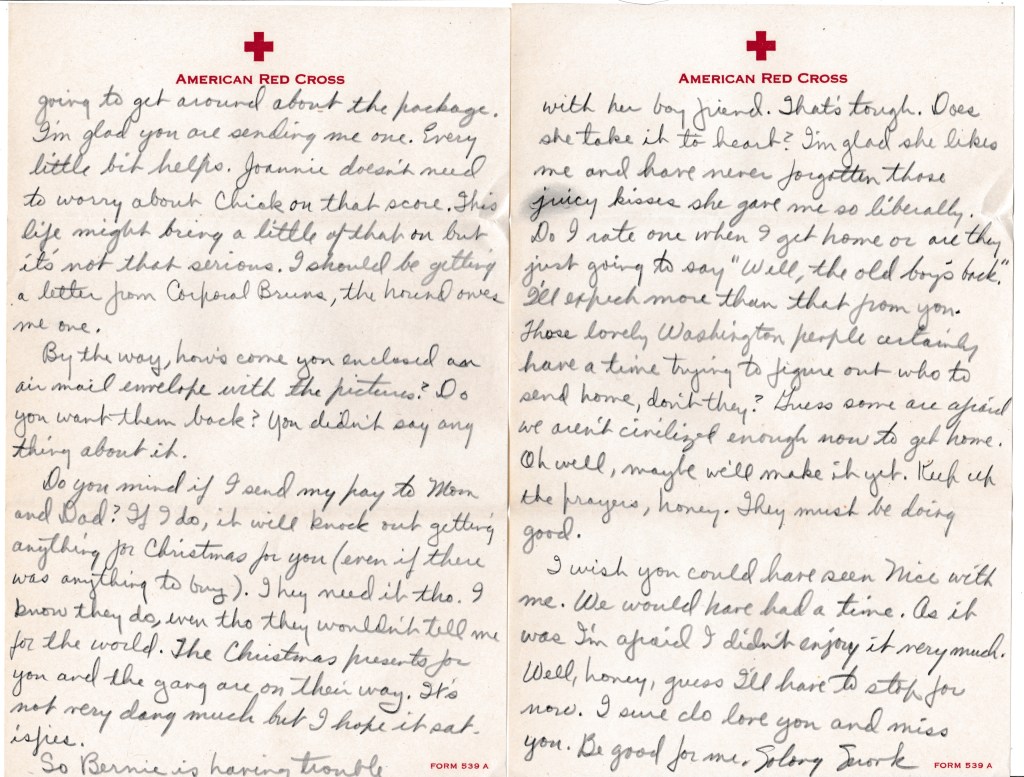 AMERICAN RED CROSS
going to get around about the package.
I'm glad you are sending me one. Every
little bit helps. Joannie doesn't need
to worry about Chick on that score. This
life might bring a little of that on but
it's not that serious. I should be getting
a letter from Corporal Bruns, the hound owes
me one.
By the way, how's come you enclosed an
air mail envelope with the pictures? Do
you want them back? You didn't say any
thing about it.
Do you mind if I send my pay to Mom
and Dad? If I do, it will knock out getting
anything for Christmas for you (even if there
was anything to buy). They need it tho. I
know they do, even tho they wouldn't tell me
for the world. The Christmas presents for
you and the gang are on their way. It's
not very dang much but I hope it sat-
isfies.
So Bernie is having trouble
FORM 539 A
AMERICAN RED CROSS
with her boy friend. That's tough. Does
she take it to heart? I'm glad she likes
me and have never forgotten those
juicy kisses she gave me so liberally.
Do I rate one when I get home or are they
just going to say "Well, the old boy's back."
I'll expect more than that from you.
Those lovely Washington people certainly
have a time trying to figure out who to
send home, don't they? Guess some are afraid
we aren't civilized enough now to get home.
Oh well, maybe we'll make it yet. Keep up
the prayers, honey. They must be doing
good.
I wish you could have seen Nice with
me. We would have had a time. As it
was I'm afraid I didn't enjoy it very much.
Well, honey, guess I'll have to stop for
now. I sure do love you and miss
you. Be good for me. Solong
FORM 539 A